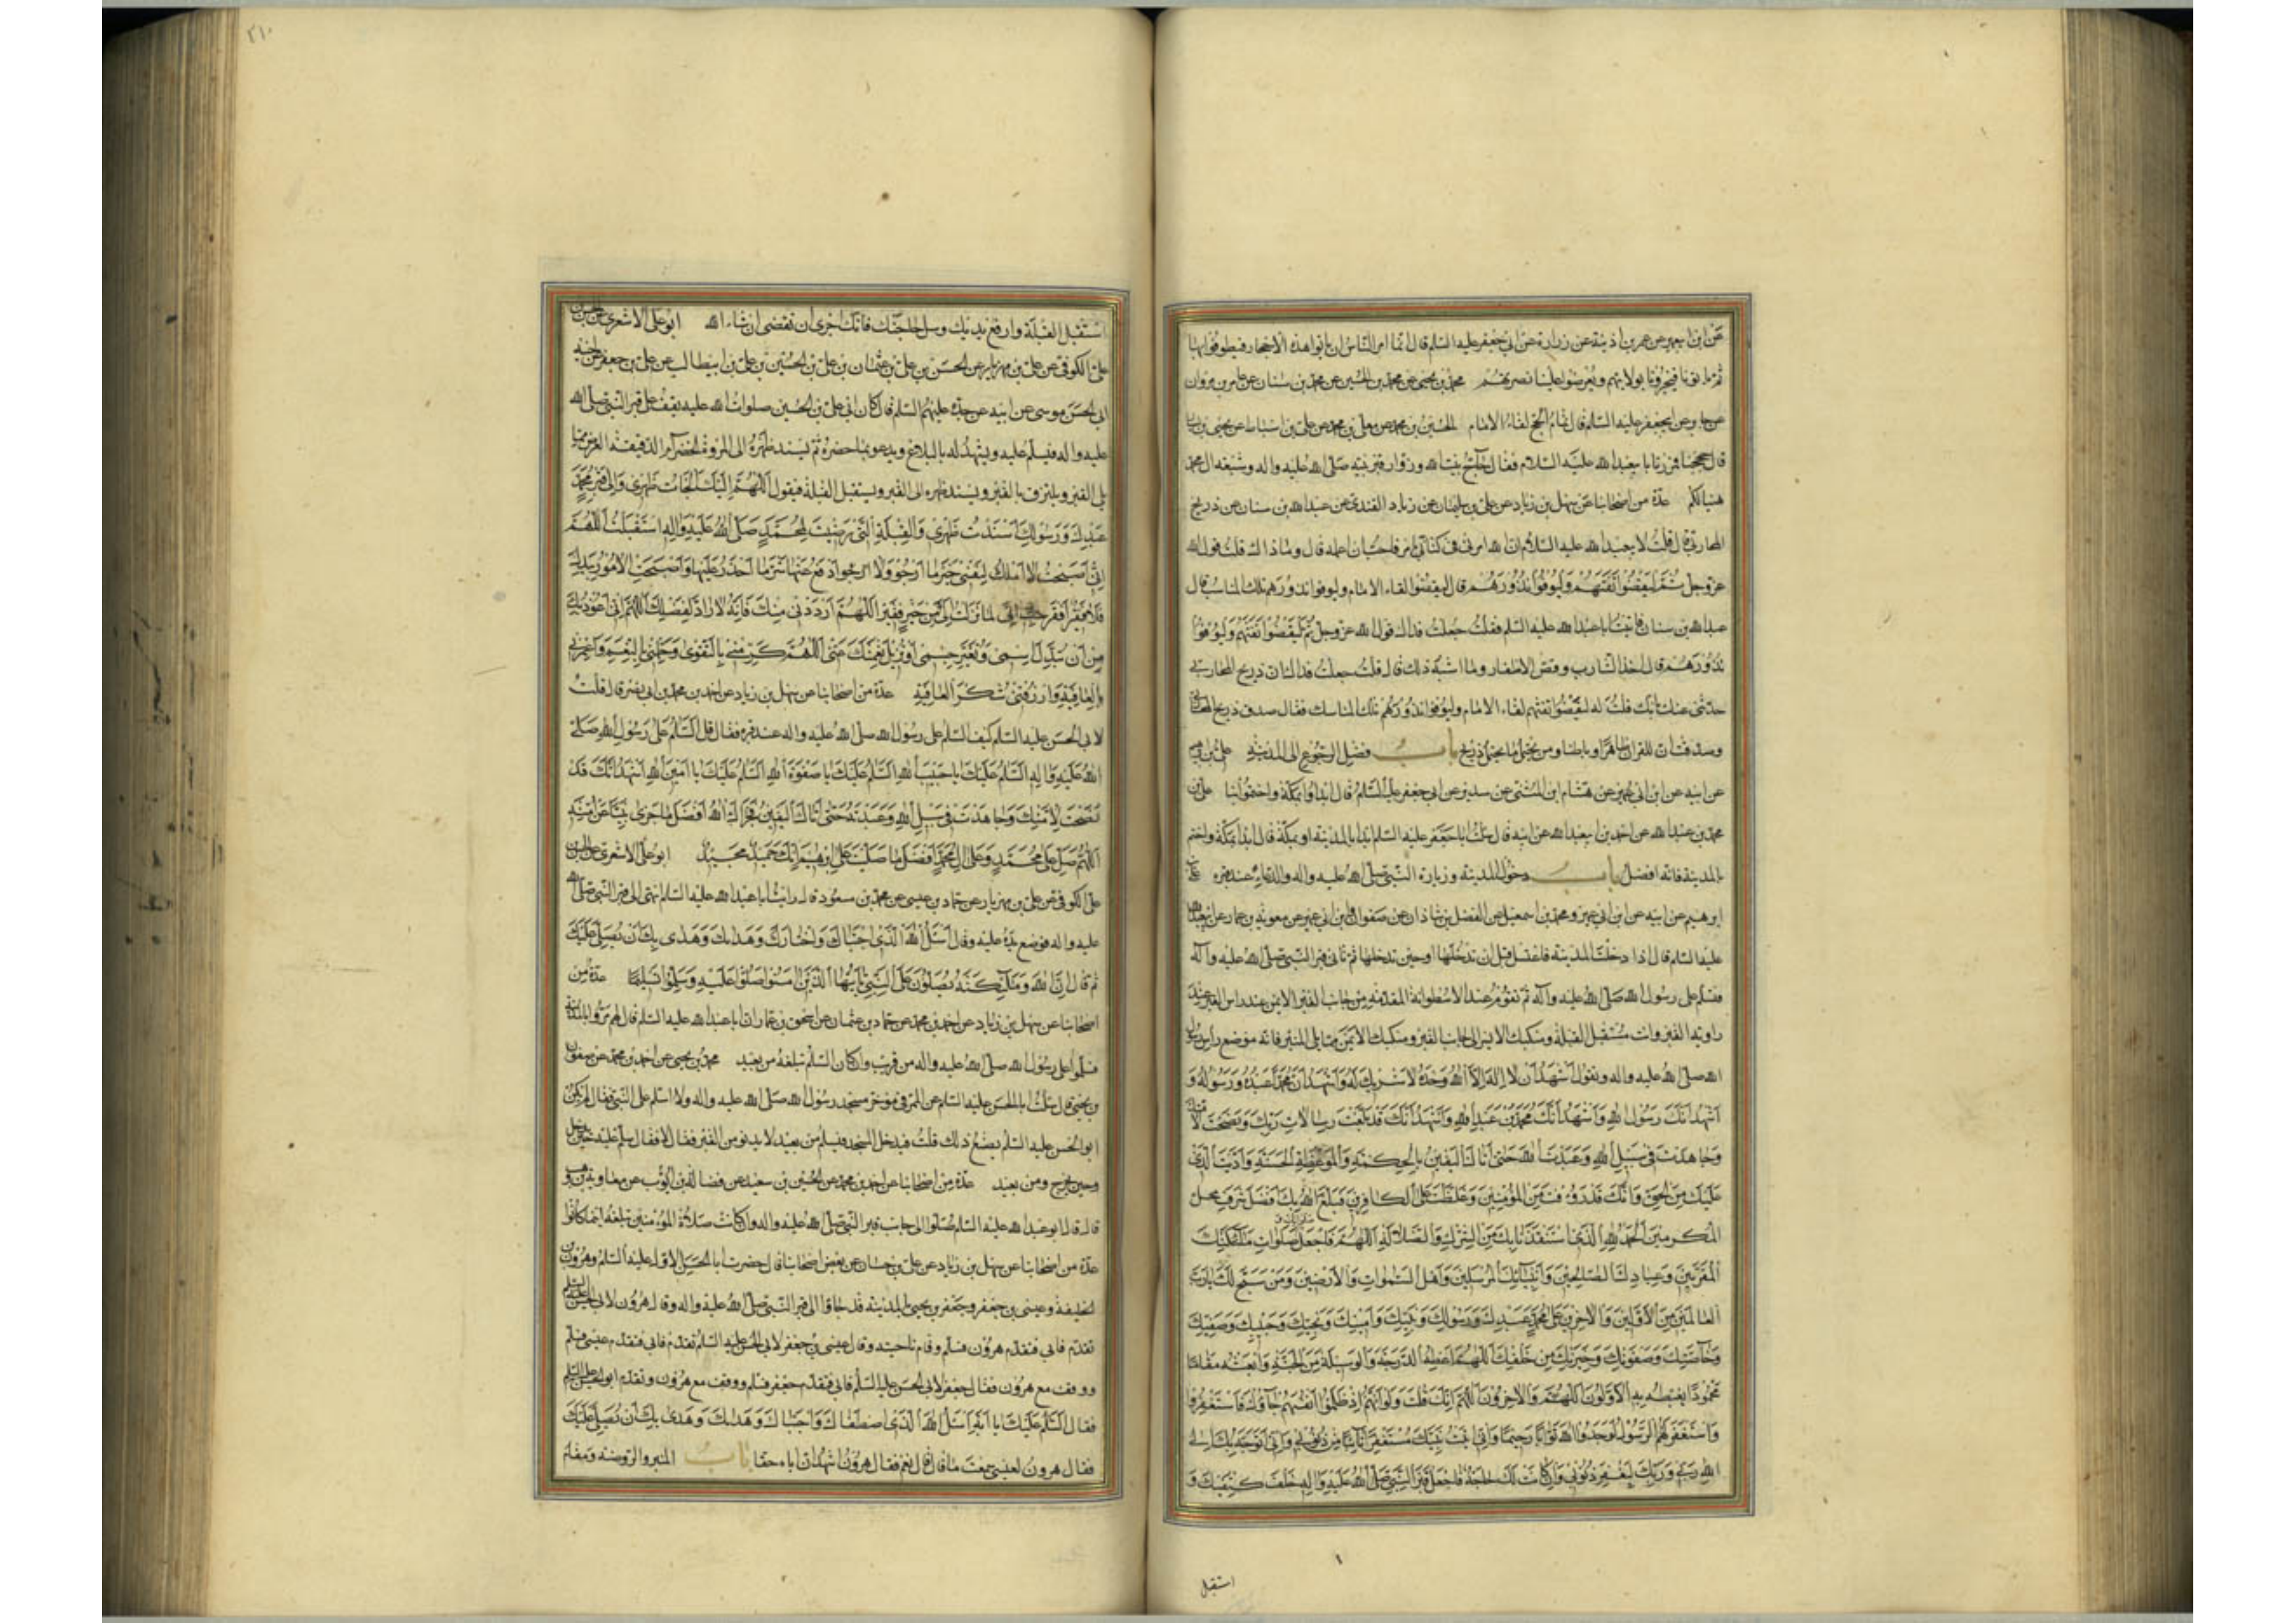 عن ابن ابي عمير عن عمر بن اذينة عن زرارة عن ابي جعفر عليه السلم قال انما امر الناس ان ياتوا هذه الاحجار فيطوفوا بها
ثم ياتونا فيخبرونا بولايتهم ويعرضوا علينا نصرتهم محمد بن يحيى عن محمد بن الحسين عن محمد بن سنان عن عمار بن مروان
عن جابر عن ابيجعفر عليه السلام قال تمام الحج لقاء الامام الحسين بن محمد عن معلى بن محمد عن علي بن اسباط عن يحيى بن
قال حججنا فمررنا بابيعبد الله عليه السلام فقال حاج بيت الله وزوار قبر نبيه صلى الله عليه واله وشيعة ال محمد
هنيئا لكم عدة من اصحابنا عن سهل بن زياد عن علي بن سليمان عن زياد القندي عن عبد الله بن سنان عن ذريح
المحاربي قال قلت لابيعبد الله عليه السلام ان الله امرني في كتابه بامر فاحب ان اعمله قال وما ذاك قلت قول الله
عز وجل ثم ليقضوا تفثهم وليوفوا نذورهم قال ليقضوا لقاء الامام وليوفوا نذورهم تلك المناسك قال
عبد الله بن سنان فاتيت ابا عبد الله عليه السلم فقلت جعلت فداك قول الله عز وجل ثم ليقضوا تفثهم وليوفوا
نذورهم قال اخذ الشارب وقص الاظفار وما اشبه ذلك قال قلت جعلت فداك ان ذريح المحاربي
حدثني عنك بانك قلت له ليقضوا تفثهم لقاء الامام وليوفوا نذورهم تلك المناسك فقال صدق ذريح
وصدقت ان للقران ظاهرا وباطنا ومن يحتمل ما يحتمل ذريح باب فضل الرجوع الى المدينة علي بن
عن ابيه عن ابن ابي عمير عن هشام ابن المثنى عن سدير عن ابي جعفر عليه السلام قال ابداوا بمكة واختموا بنا علي بن
محمد بن عبد الله عن احمد بن ابيعبد الله عن ابيه قال سئلت ابا جعفر عليه السلم ابدا بالمدينة او بمكة قال ابدا بمكة واختم
بالمدينة فانه افضل باب دخول المدينة وزيارة النبي صلى الله عليه واله والدعاء عند قبره علي بن
ابرهيم عن ابيه عن ابن ابي عمير ومحمد بن اسمعيل عن الفضل بن شاذان عن صفوان وابن ابي عمير عن معوية بن عمار عن ابيعبد الله
عليه السلم قال اذا دخلت المدينة فاغتسل قبل ان تدخلها او حين تدخلها ثم تاتي قبر النبي صلى الله عليه وآله
فسلم على رسول الله صلى الله عليه وآله ثم تقوم عند الاسطوانة المقدمة من جانب القبر الايمن عند راس القبر عند
زاوية القبر وانت مستقبل القبلة ومنكبك الايسر الى جانب القبر ومنكبك الايمن مما يلي المنبر فانه موضع رأس رسول
الله صلى الله عليه واله وتقول اشهد أن لا اله الا الله وحده لا شريك له واشهد ان محمدا عبده ورسوله و
اشهد انك رسول الله واشهد انك محمد بن عبد الله واشهد انك قد بلغت رسالات ربك ونصحت لامتك
وجاهدت في سبيل الله وعبدت الله حتى اتاك اليقين بالحكمة والموعظة الحسنة وادّيت الذي
عليك من الحق وانك قد رؤفت بالمؤمنين وغلظت على الكافرين فبلغ الله بك افضل شرف محل
المكرمين الحمد لله الذي استنقذنا بك من الشرك والضلالة اللهم فاجعل صلواتك وصلوات ملائكتك
المقربين وعبادك الصالحين وانبيائك المرسلين واهل السموات والارضين ومن سبح لك يا رب
العالمين من الاولين والاخرين على محمد عبدك ورسولك ونبيك وامينك ونجيك وحبيبك وصفيك
وخاصتك وصفوتك وخيرتك من خلقك اللهم اعطه الدرجة والوسيلة من الجنة وابعثه مقاما
محمودا يغبطه به الاولون والاخرون اللهم انك قلت ولو انهم اذ ظلموا انفسهم جاؤك فاستغفروا
الله واستغفر لهم الرسول لوجدوا الله توابا رحيما واني اتيت نبيك مستغفرا تائبا من ذنوبي واني اتوجه بك الى
الله ربي وربك ليغفر ذنوبي وان كانت لك حاجة فاجعل قبر النبي صلى الله عليه واله خلف كتفيك و
استقبل
٢١٠
استقبل القبلة وارفع يديك وسل حاجتك فانك احرى ان تقضى ان شاء الله ابو علي الاشعري عن الحسن بن
علي الكوفي عن علي بن مهزيار عن الحسن بن علي بن عثمان بن علي بن الحسين بن علي بن ابيطالب عن علي بن جعفر عن اخيه
ابي الحسن موسى عن ابيه عن جده عليهم السلم قال كان ابي علي بن الحسين صلوات الله عليه يقف على قبر النبي صلى الله
عليه واله فيسلم عليه ويشهد له بالبلاغ ويدعو بما حضره ثم يسند ظهره الى المروة الخضراء الدقيقة العرض مما
يلي القبر ويلتزق بالقبر ويسند ظهره الى القبر ويستقبل القبلة فيقول اللهم اليك الجات ظهري والى قبر محمد
عبدك ورسولك اسندت ظهري والقبلة التي رضيت لمحمد صلى الله عليه واله استقبلت اللهم
اني اصبحت لا املك لنفسي خير ما ارجو ولا ادفع عنها شر ما احذر عليها واصبحت الامور بيدك
فلا فقير افقر مني اني لما انزلت الي من خير فقير اللهم ارددني منك بخير فانه لا راد لفضلك اللهم اني اعوذ بك
من ان تبدل اسمي وتغير جسمي او تزيل نعمتك عني اللهم كرمني بالتقوى وجملني بالنعم واعمرني
بالعافية وارزقني شكر العافية عدة من اصحابنا عن سهل بن زياد عن احمد بن محمد بن ابي نصر قال قلت
لابي الحسن عليه السلم كيف السلم على رسول الله صلى الله عليه واله عند قبره فقال قل السلم على رسول الله صلى
الله عليه واله السلم عليك يا حبيب الله السلم عليك يا صفوة الله السلم عليك يا امين الله اشهد انك قد
نصحت لامتك وجاهدت في سبيل الله وعبدته حتى اتاك اليقين فجزاك الله افضل ما جزى نبيا عن امته
اللهم صل على محمد وعلى ال محمد افضل ما صليت على ابرهيم انك حميد مجيد ابو علي الاشعري عن الحسن بن
علي الكوفي عن علي بن مهزيار عن حماد بن عيسى عن محمد بن مسعود قال رايت ابا عبد الله عليه السلم انتهى الى قبر النبي صلى الله
عليه واله فوضع يده عليه وقال اسئل الله الذي اجتباك واختارك وهداك وهدى بك ان يصلي عليك
ثم قال ان الله وملائكته يصلون على النبي يا ايها الذين امنوا صلوا عليه وسلموا تسليما عدة من
اصحابنا عن سهل بن زياد عن احمد بن محمد عن حماد بن عثمان عن اسحق بن عمار ان ابا عبد الله عليه السلم قال لهم مروا بالمدينة
فسلموا على رسول الله صلى الله عليه واله من قريب وان كان السلم تبلغه من بعيد محمد بن يحيى عن احمد بن محمد عن صفوان
بن يحيى قال سئلت ابا الحسن عليه السلم عن الممر في مؤخر مسجد رسول الله صلى الله عليه واله ولا اسلم على النبي فقال لم يكن
ابو الحسن عليه السلم يصنع ذلك قلت فيدخل المسجد فيسلم من بعيد لا يدنو من القبر فقال لا فقال سلم عليه حين تدخل
وحين تخرج ومن بعيد عدة من اصحابنا عن احمد بن محمد عن الحسين بن سعيد عن فضالة بن ايوب عن معاوية بن وهب
قال قال ابو عبد الله عليه السلم صلوا الى جانب قبر النبي صلى الله عليه واله وان كانت صلاة المؤمنين تبلغه اينما كانوا
عدة من اصحابنا عن سهل بن زياد عن علي بن حسان عن بعض اصحابنا قال حضرت ابا الحسن الاول عليه السلم وهرون
الخليفة وعيسى بن جعفر وجعفر بن يحيى بالمدينة قد جاؤا الى قبر النبي صلى الله عليه واله وقال هرون لابي الحسن عليه السلم
تقدم فابى فتقدم هرون فسلم وقام ناحية وقال عيسى بن جعفر لابي الحسن عليه السلم تقدم فابى فتقدم عيسى فسلم
ووقف مع هرون فقال جعفر لابي الحسن عليه السلم تقدم فابى فتقدم جعفر فسلم ووقف مع هرون وتقدم ابو الحسن عليه السلم
فقال السلم عليك يا ابه اسئل الله الذي اصطفاك واجتباك وهداك وهدى بك ان يصلي عليك
فقال هرون لعيسى سمعت ما قال قال نعم فقال هرون اشهد انه اباه حقا باب المنبر والروضة ومقام